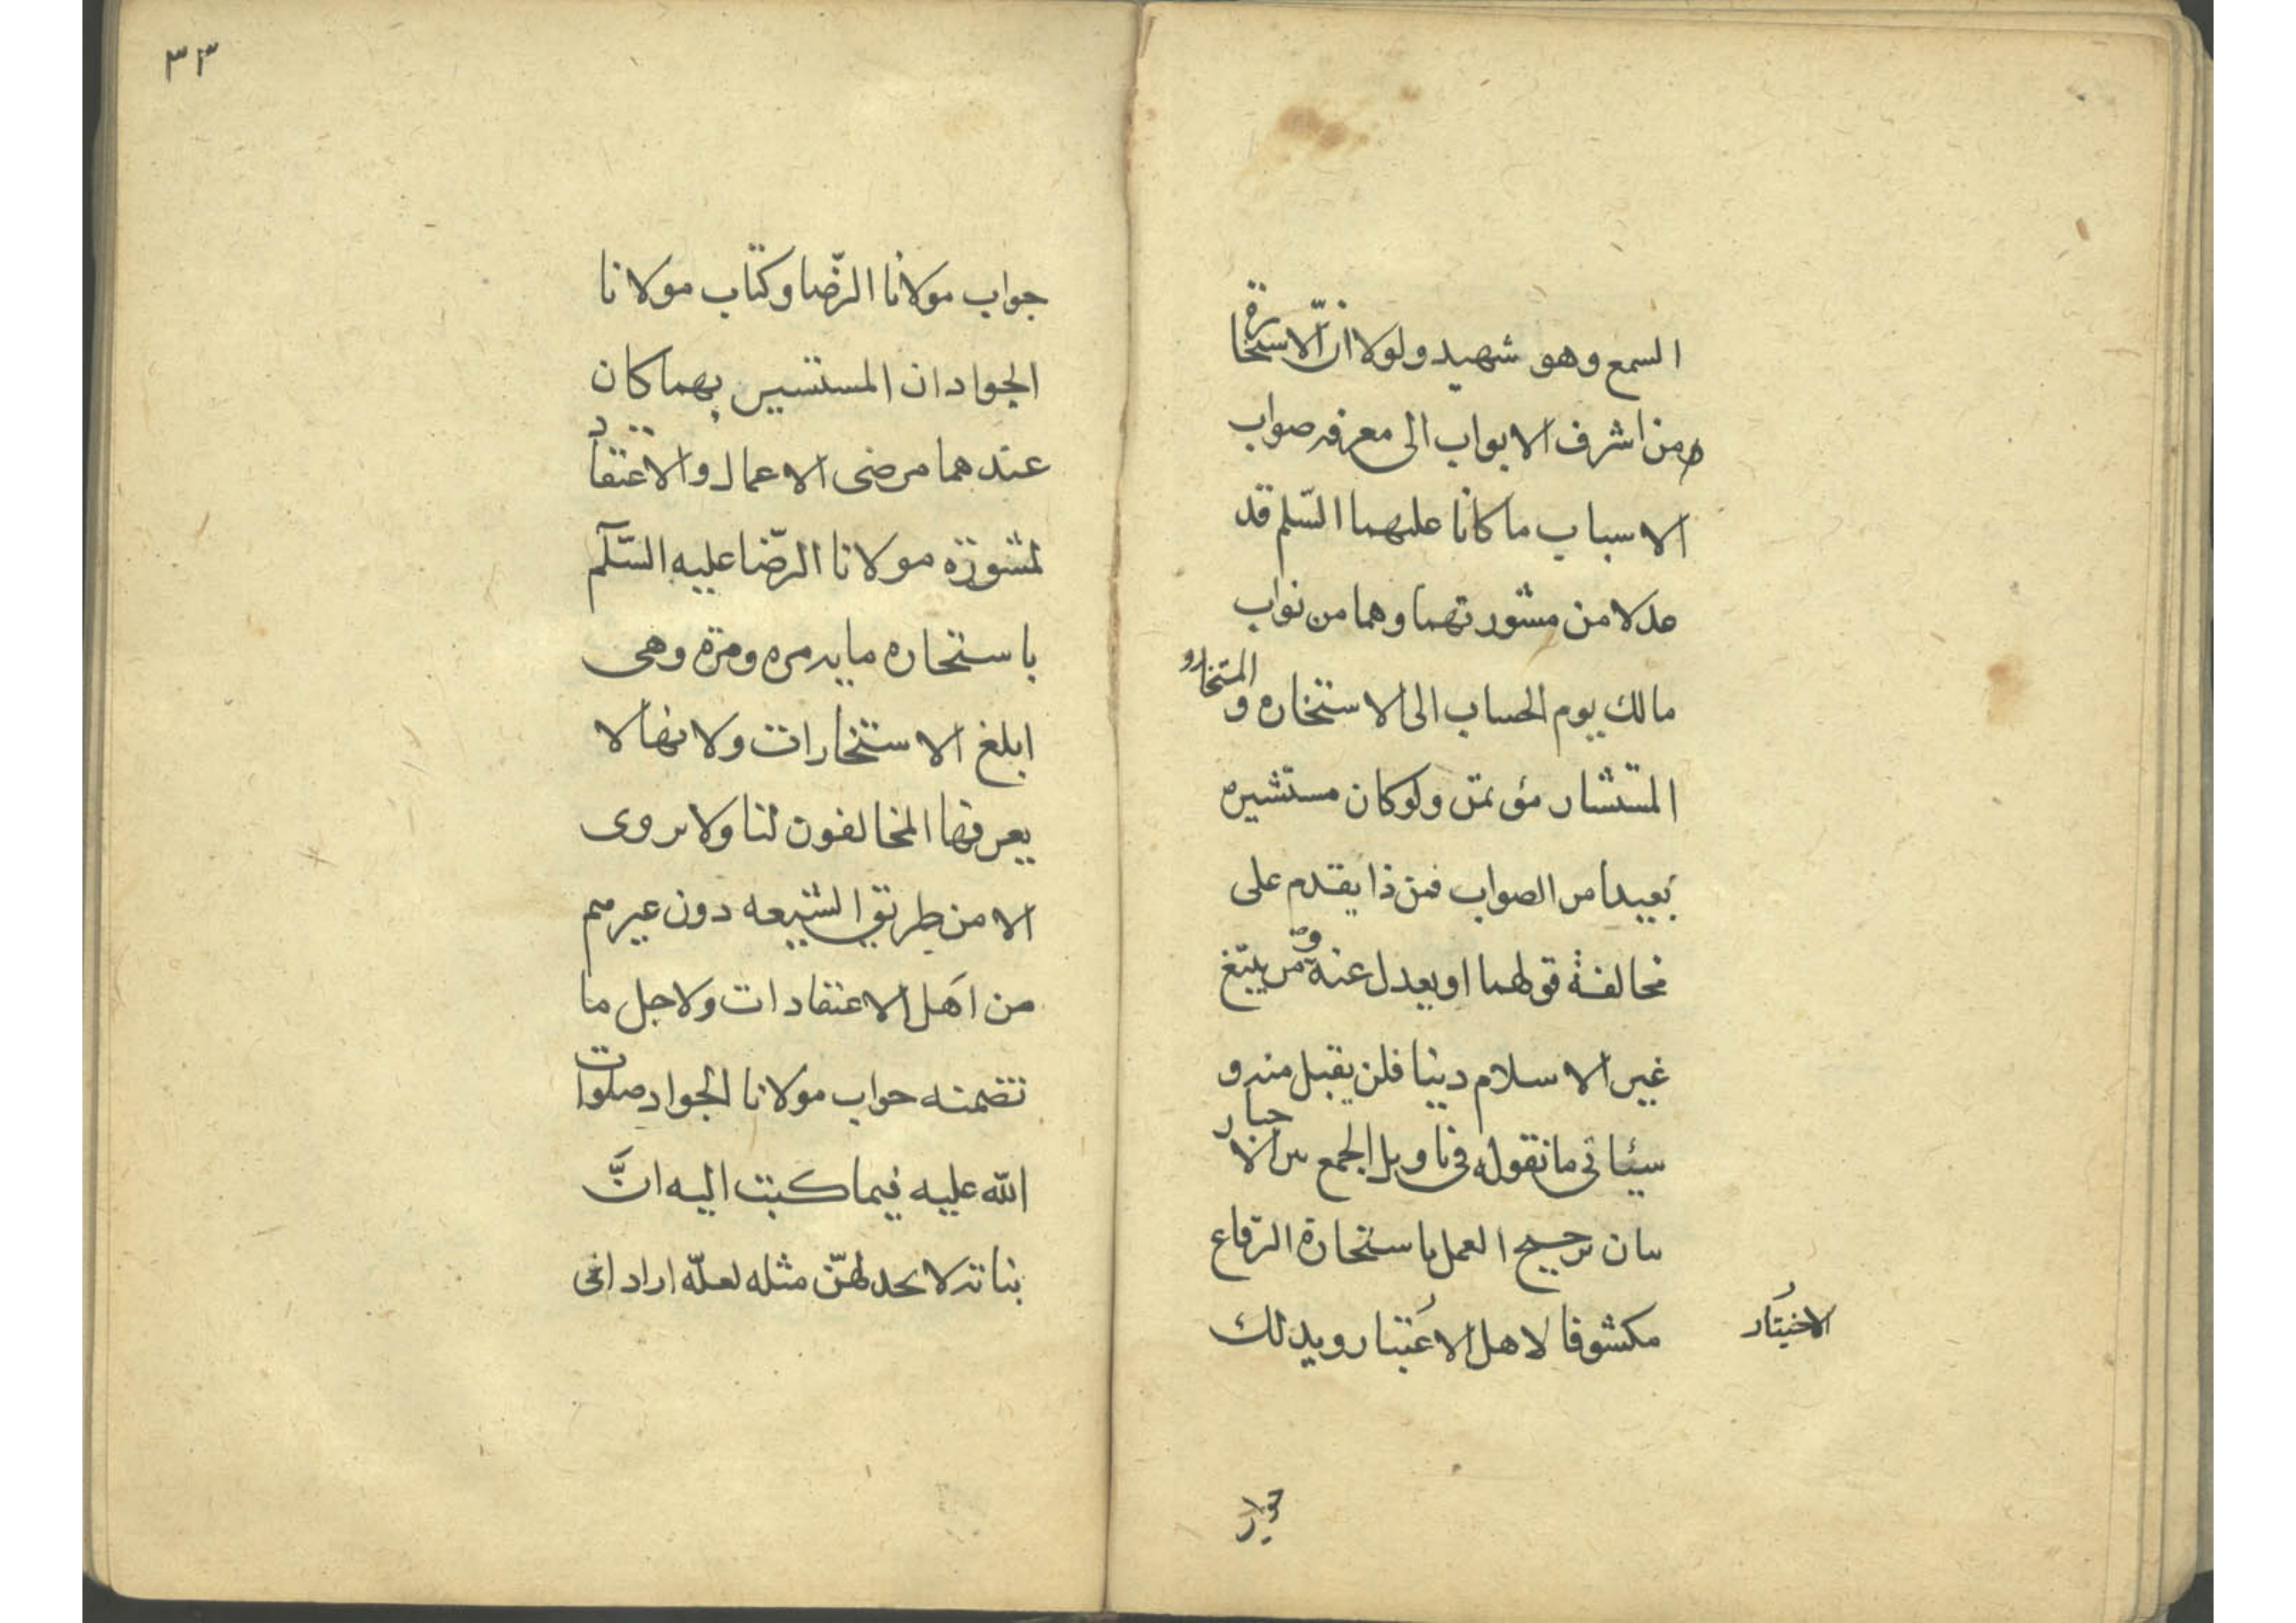 السمع وهو شهيد ولولا ان الاستخارة
من اشرف الابواب الى معرفه صواب
الاسباب ما كانا عليهما السّلم قد
عدلا من مشورتهما وهما من نواب
مالك يوم الحساب الى الاستخاره و المستخار و
المستشار مؤتمن ولو كان مستشيره
بعيدا من الصواب فمن ذا يقدم على
مخالفة قولهما او يعدل عنه ومن يبتغ
غير الاسلام دينا فلن يقبل منه و
سيئاتى ما نقوله فى تاويل الجمع بين الاخبار
بيان ترجيح العمل باستخارة الرّقاع
مكشوفا لاهل الاعتبار ويدلك
الاختيار
جواب مولانا الرّضا وكتاب مولانا
الجواد ان المستشير بهما كان
عندهما مرضى الاعمال والاعتقاد
لمشورة مولانا الرّضا عليه السّلم
باستخاره مايه مره ومرّه وهى
ابلغ الاستخارات ولانها لا
يعرفها المخالفون لنا ولا يروى
الا من طريق الشيعه دون غيرهم
من اهل الاعتقادات ولاجل ما
تضمنه جواب مولانا الجواد صلوات
الله عليه فيما كتبت اليه انَّ
بناته لا يجد لهنّ مثله لعلّه اراد انى
٣٣